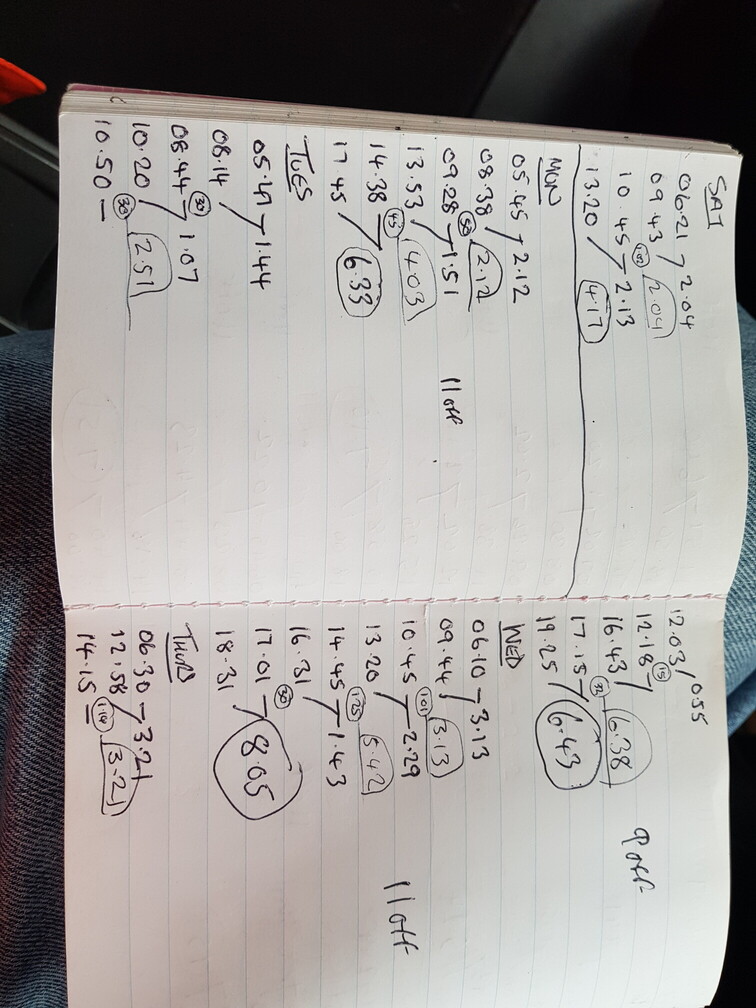 SAT
06.21 2.04
09.43 1.02 2.04
10.45 2.13
13.20 4.17
MON
05.45 2.12
08.38 50 2.12
09.28 1.51
13.53 45 4.03
14.38
17.45 6.33
11 off
TUES
05.47 1.44
08.14
08.44 30 1.07
10.20
10.50 30 2.51
12.03 055
12.18 15
16.43 32 6.38
17.15
19.25 6.43
9 off
WED
06.10 3.13
09.44 1.01 3.13
10.45 2.29
13.20 1.25 5.42
14.45 1.43
16.31 30
17.01
18.31 8.05
11 off
THURS
06.30 3.21
12.58 3.21
14.15